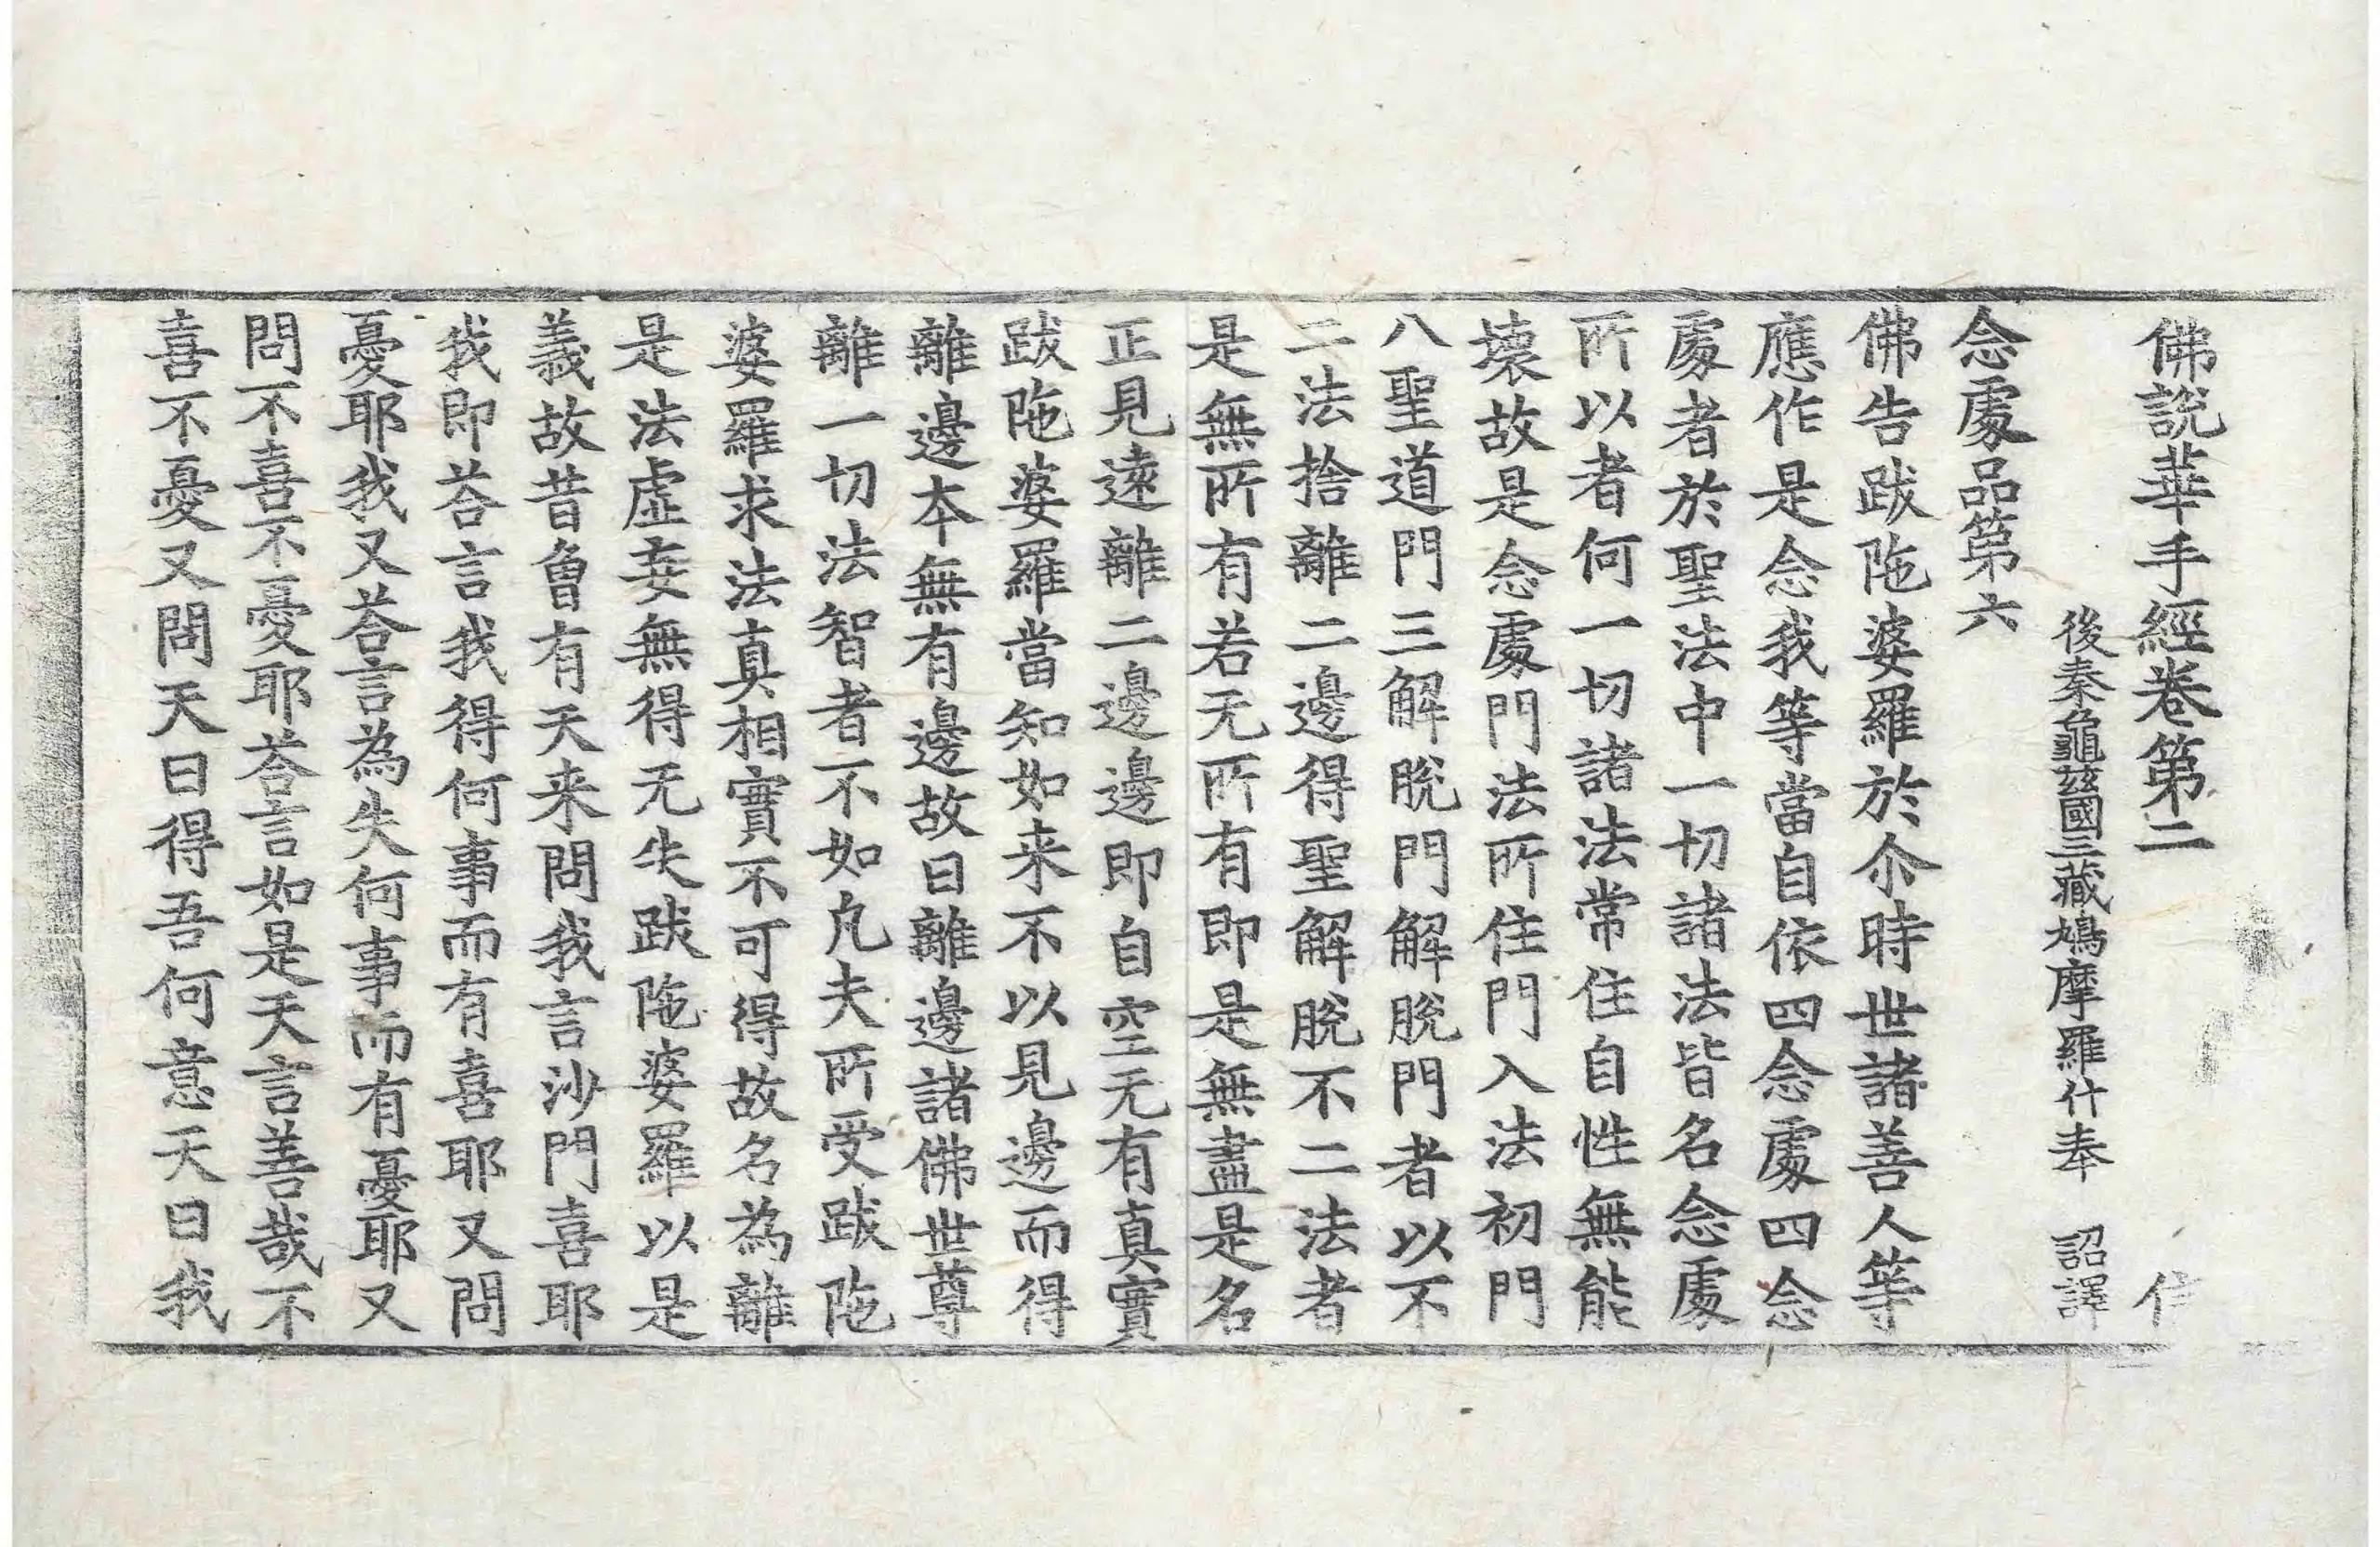 佛說華手經卷第二 信
後秦龜茲國三藏鳩摩羅什奉 詔譯
念處品第六
佛告跋陁婆羅於尒時世諸善人等
應作是念我等當自依四念處四念
處者於聖法中一切諸法皆名念處
所以者何一切諸法常住自性無能
壞故是念處門法所住門入法初門
八聖道門三解脫門解脫門者以不
二法捨離二邊得聖解脫不二法者
是無所有若无所有即是無盡是名
正見遠離二邊邊即自空无有真實
跋陁婆羅當知如来不以見邊而得
離邊本無有邊故曰離邊諸佛世尊
離一切法智者不如凡夫所受跋陁
婆羅求法真相實不可得故名為離
是法虛妄無得无失跋陁婆羅以是
義故昔曾有天来問我言沙門喜耶
我即荅言我得何事而有喜耶又問
憂耶我又荅言為失何事而有憂耶又
問不喜不憂耶荅言如是天言善哉不
喜不憂又問天曰得吾何意天曰我